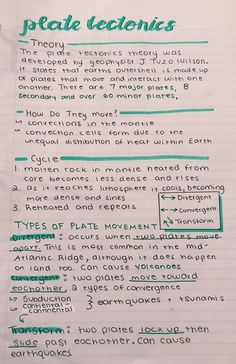 plate tectonics
Theory
The plate tectonics theory was
developed by geophysist J Tuzo Wilson.
It states that earths outershell is made up
of plates that move and interact with one
another. There are 7 major plates, 8
secondary and over 60 minor plates.
How Do They Move?
↳ convections in the mantle
↳ convection cells form due to the
unequal distribution of heat within Earth
Cycle
1. molten rock in mantle heated from
core becomes less dense and rises
2. as it reaches lithosphere it cools, becoming
more dense and sinks
3. Reheated and repeals
←→ Divergent
→← Convergent
Transform
TYPES OF PLATE MOVEMENT
Divergent: occurs when two plates move
apart. This is most common in the mid-
Atlantic Ridge, although it does happen
on land too. Can cause volcanoes
Convergent: two plates move toward
eachother, 2 types of convergence
↳ Subduction
↳ continental-
continental
} earthquakes + tsunamis
Transform: two plates lock up then
slide past eachother. can cause
earthquakes